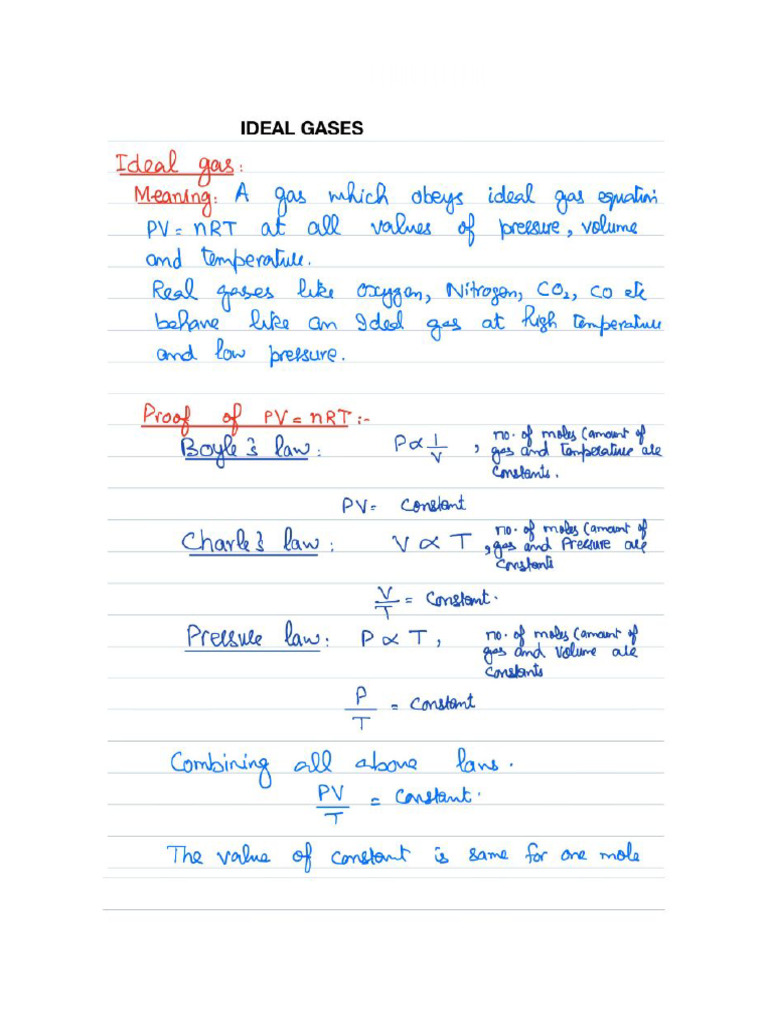 IDEAL GASES
Ideal gas:
Meaning: A gas which obeys ideal gas equation
PV = nRT at all values of pressure, volume
and temperature.
Real gases like Oxygen, Nitrogen, CO₂, CO etc
behave like an Ideal gas at high temperature
and low pressure.
Proof of PV = nRT :-
Boyle's law: P ∝ 1/V , no. of moles (amount of
gas and temperature are
constants.
PV = Constant
Charle's law: V ∝ T , no. of moles (amount of
gas and Pressure are
constants
V/T = Constant.
Pressure law: P ∝ T, no. of moles (amount of
gas and volume are
constants
P/T = Constant
Combining all above laws.
PV/T = Constant.
The value of constant is same for one mole